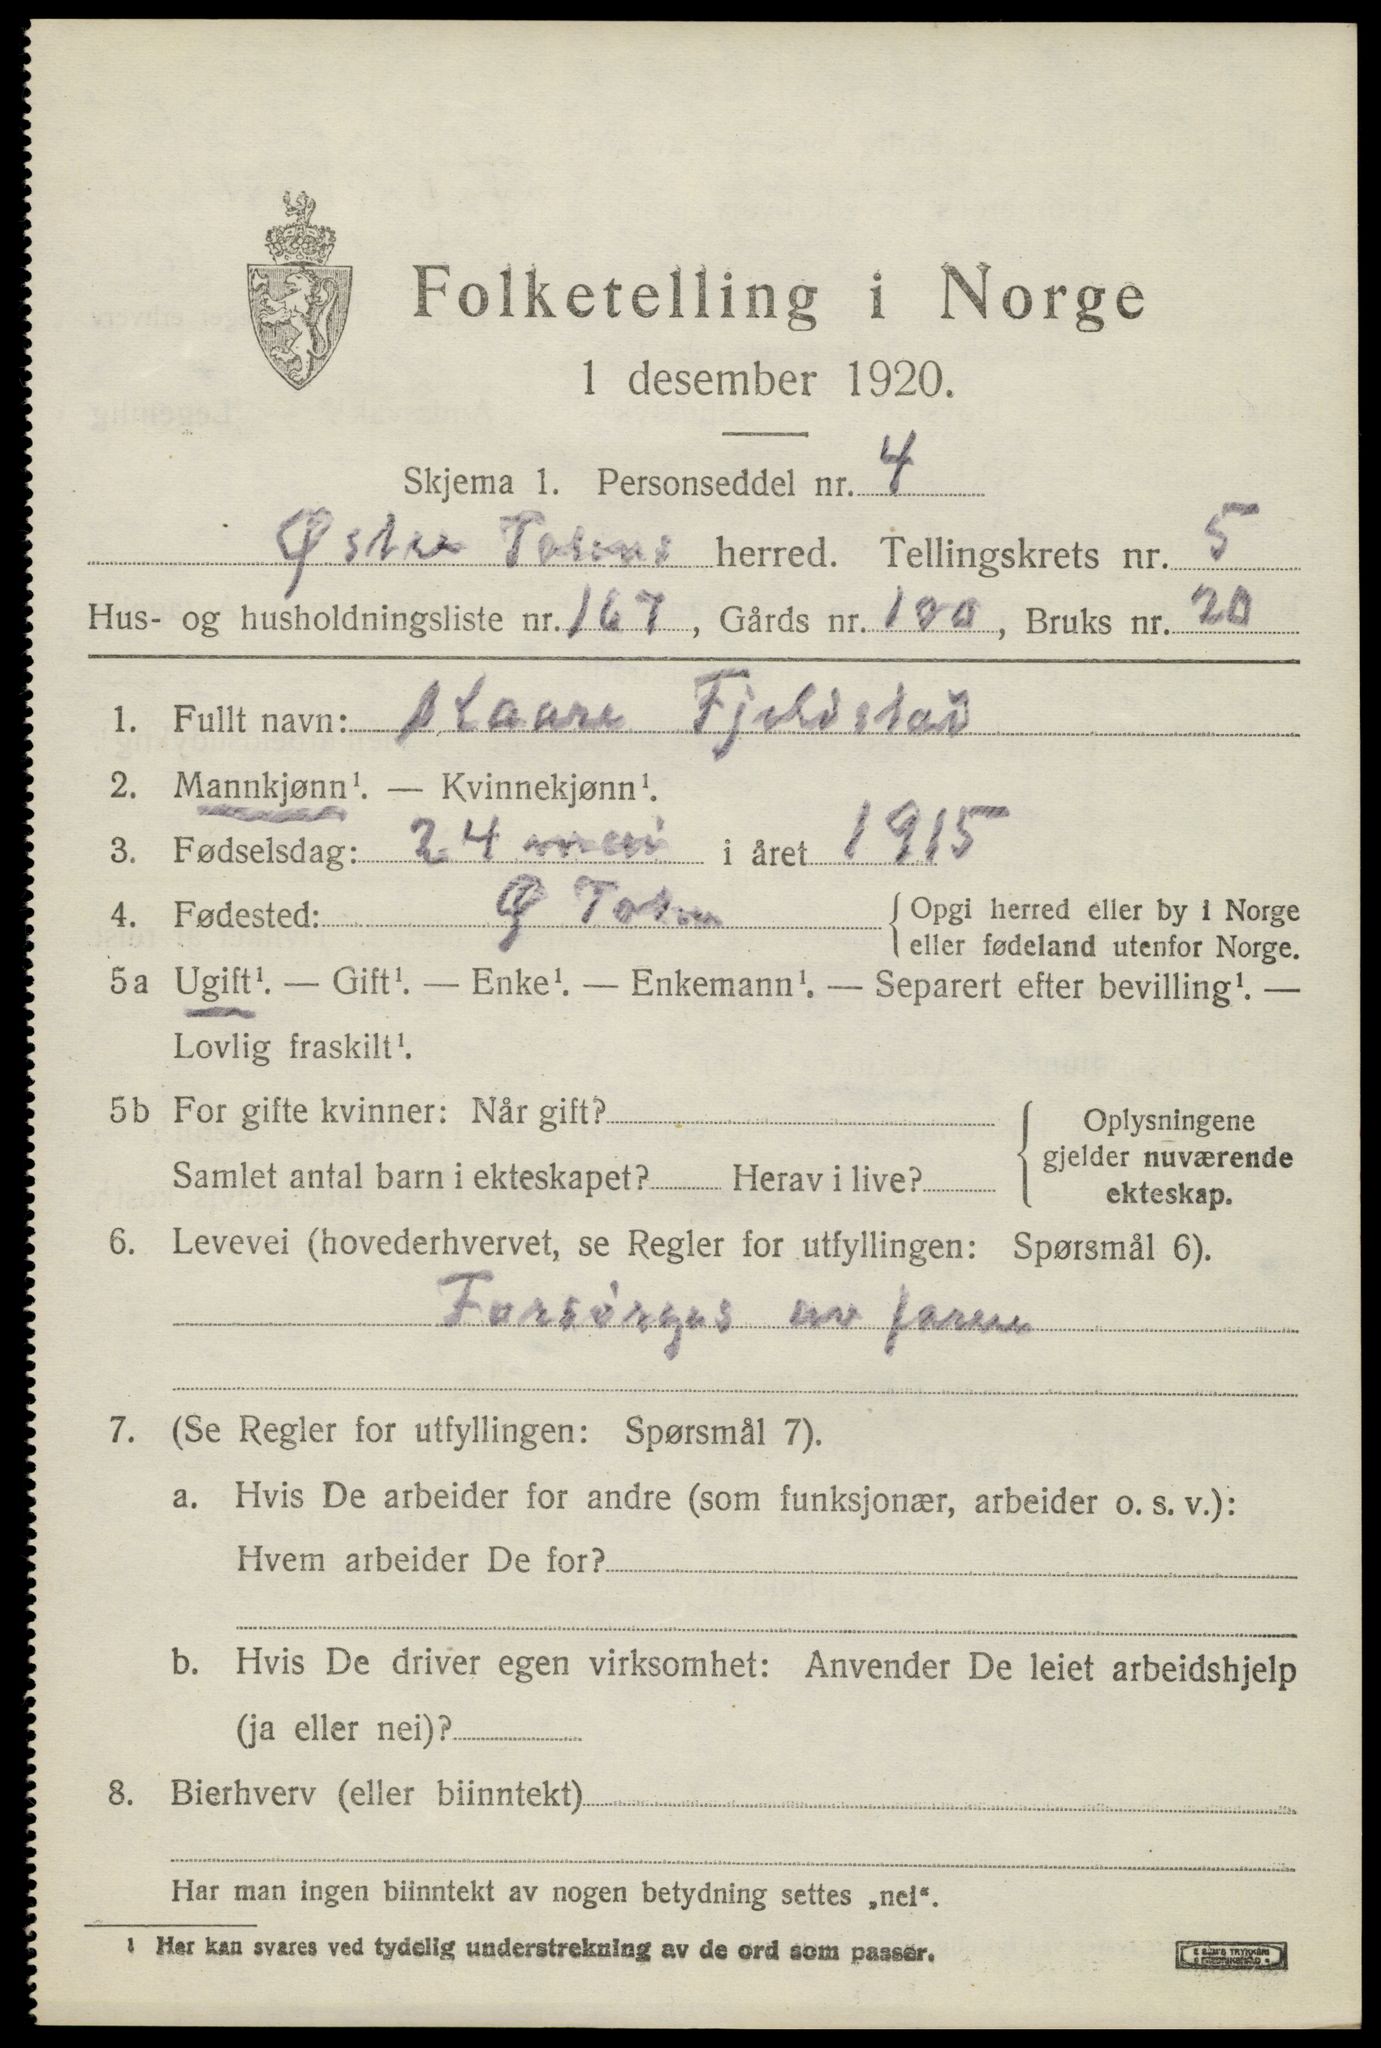 Folketelling i Norge
1 desember 1920.
Skjema 1. Personseddel nr. 4
Østre Totens herred. Tellingskrets nr. 5
Hus- og husholdningsliste nr. 167, Gårds nr. 100, Bruks nr. 20
1. Fullt navn: Kaare Fjeldstad
2. Mannkjønn¹. — Kvinnekjønn¹.
3. Fødselsdag: 24 mai i året 1915
4. Fødested: Ø Toten {Opgi herred eller by i Norge
eller fødeland utenfor Norge.
5a Ugift¹. — Gift¹. — Enke¹. — Enkemann¹. — Separert efter bevilling¹. —
Lovlig fraskilt¹.
5b For gifte kvinner: Når gift? { Oplysningene
gjelder nuværende
Samlet antal barn i ekteskapet? Herav i live? ekteskap.
6. Levevei (hovederhvervet, se Regler for utfyllingen: Spørsmål 6).
Forsørges av faren
7. (Se Regler for utfyllingen: Spørsmål 7).
a. Hvis De arbeider for andre (som funksjonær, arbeider o. s. v.):
Hvem arbeider De for?
b. Hvis De driver egen virksomhet: Anvender De leiet arbeidshjelp
(ja eller nei)?
8. Bierhverv (eller biinntekt)
Har man ingen biinntekt av nogen betydning settes „nei“.
1 Her kan svares ved tydelig understrekning av de ord som passer.